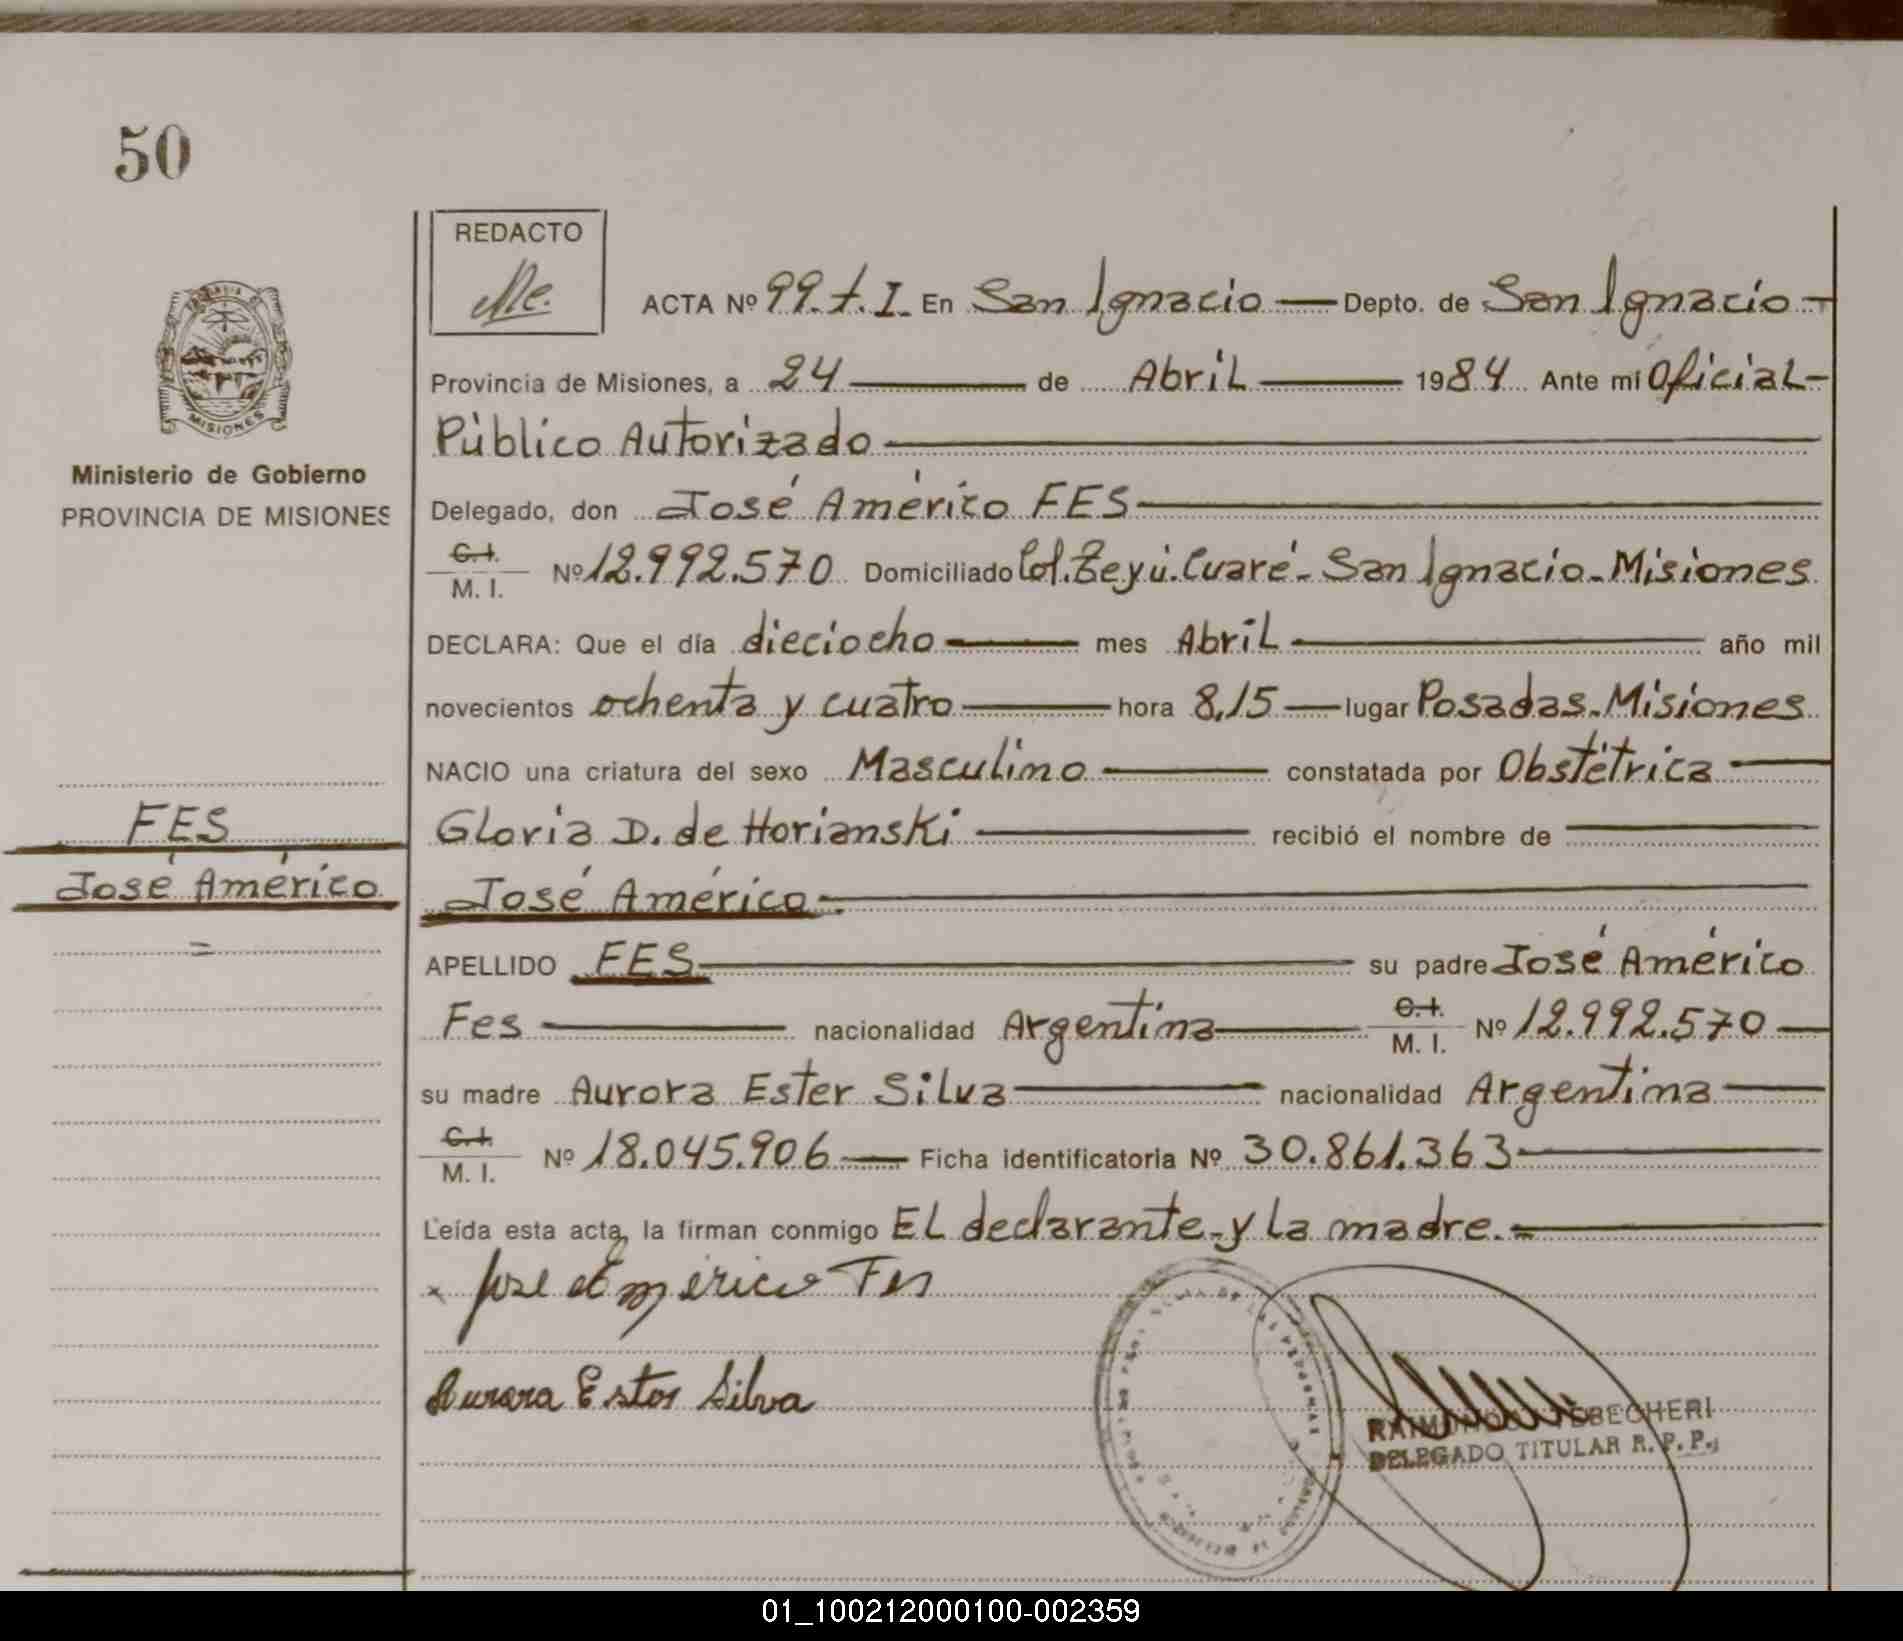 50
REDACTO
ACTA Nº 99.t.I. En San Ignacio Depto. de San Ignacio
Provincia de Misiones, a 24 de Abril 1984 Ante mi Oficial
Público Autorizado
Ministerio de Gobierno
PROVINCIA DE MISIONES
Delegado, don José Américo FES
C.I. M. I. Nº 12.992.570 Domiciliado Col. Teyú. Cuaré - San Ignacio - Misiones
DECLARA: Que el día dieciocho mes Abril año mil
novecientos ochenta y cuatro hora 8,15 lugar Posadas - Misiones
NACIO una criatura del sexo Masculino constatada por Obstétrica
FES
Gloria D. de Horianski recibió el nombre de
José Américo
José Américo
APELLIDO FES su padre José Américo
Fes nacionalidad Argentina C.I. M. I. Nº 12.992.570
su madre Aurora Ester Silva nacionalidad Argentina
C.I. M. I. Nº 18.045.906 Ficha identificatoria Nº 30.861.363
Leída esta acta, la firman conmigo El declarante - y la madre.=
x José Américo Fes
Aurora Ester Silva
DELEGADO TITULAR R. P. P.
01_100212000100-002359